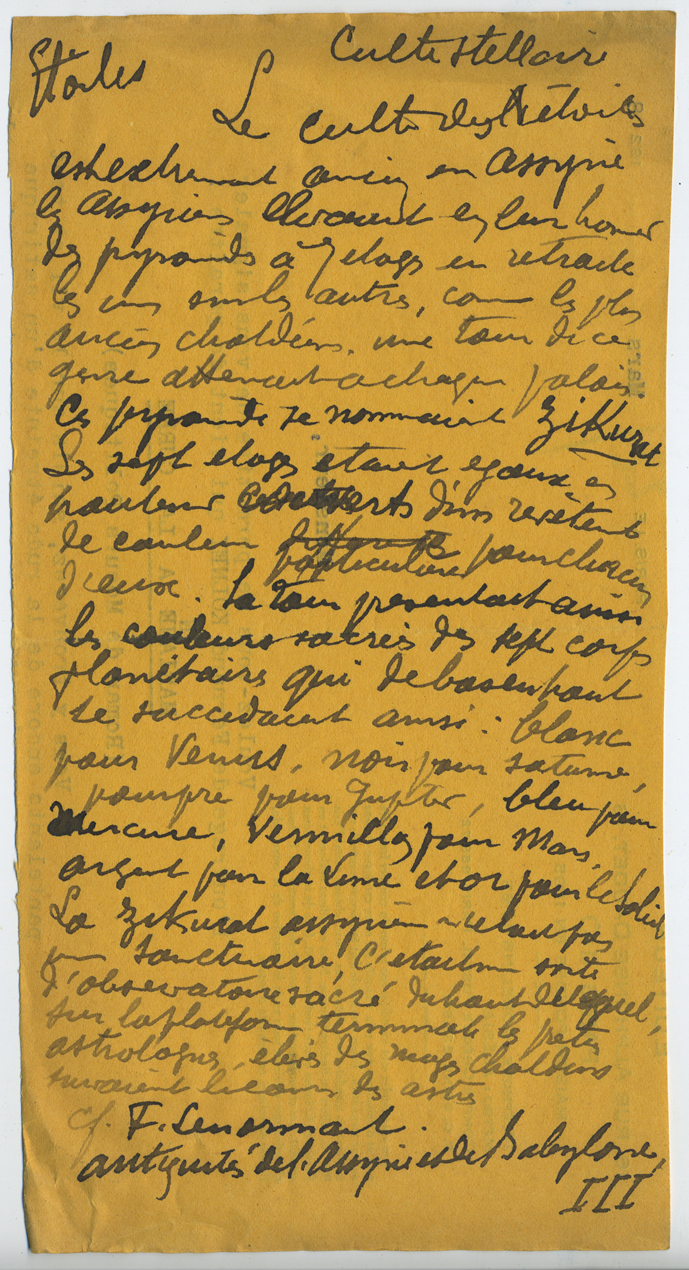 Etoiles
Culte stellaire
Le culte des étoiles
est extrement ancien en Assyrie
les Assyriens élevaient en leur honneur
des pyramides à 7 etages en retraite
les uns sur les autres, comme les plus
anciens chaldéens. une tour de ce
genre attenait a chaque palais
Ces pyramides se nommaient ZiKurat
Les sept etages etaient egaux en
hauteur couverts d'un revêtement
de couleur particulière pour chacun
d'eux. La Tour presentait ainsi
les couleurs sacrées des sept corps
planétaires qui de bas en haut
se succedaient ainsi : blanc
pour Venus, noir pour saturne,
pourpre pour Jupiter, bleu pour
Mercure, Vermillon pour Mars,
argent pour la Lune et or pour le Soleil
La ZiKurat assyrienne n'etait pas
un sanctuaire, c'etait une sorte
d'observatoire sacré du haut duquel,
sur la plateforme terminale les pretres
astrologues, élèves des mages chaldéens
suivaient le cours des astres
cf. F. Lenormant.
antiquités de l'Assyrie et de Babylone,
III